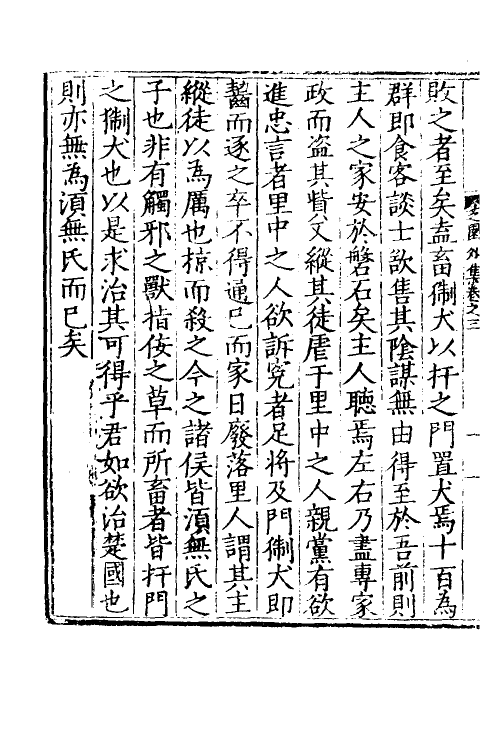 敗之者至矣盍畜猘犬以扞之門置犬焉十百為
群即食客談士欲售其陰謀無由得至於吾前則
主人之家安於磐石矣主人聽焉左右乃盡專家
政而盜其貲又縱其徒虐于里中之人親黨有欲
進忠言者里中之人欲訴寃者足將及門猘犬即
齧而逐之卒不得通已而家日廢落里人謂其主
縱徒以為厲也掠而殺之今之諸侯皆湏無氏之
子也非有觸邪之獸指佞之草而所畜者皆扞門
之猘犬也以是求治其可得乎君如欲治楚國也
則亦無為湏無氏而已矣
外集卷之三
一